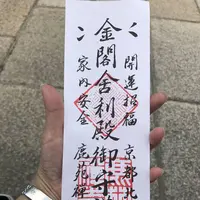 開運招福 京都北
金閣舎利殿御守
家内安全 鹿苑禅